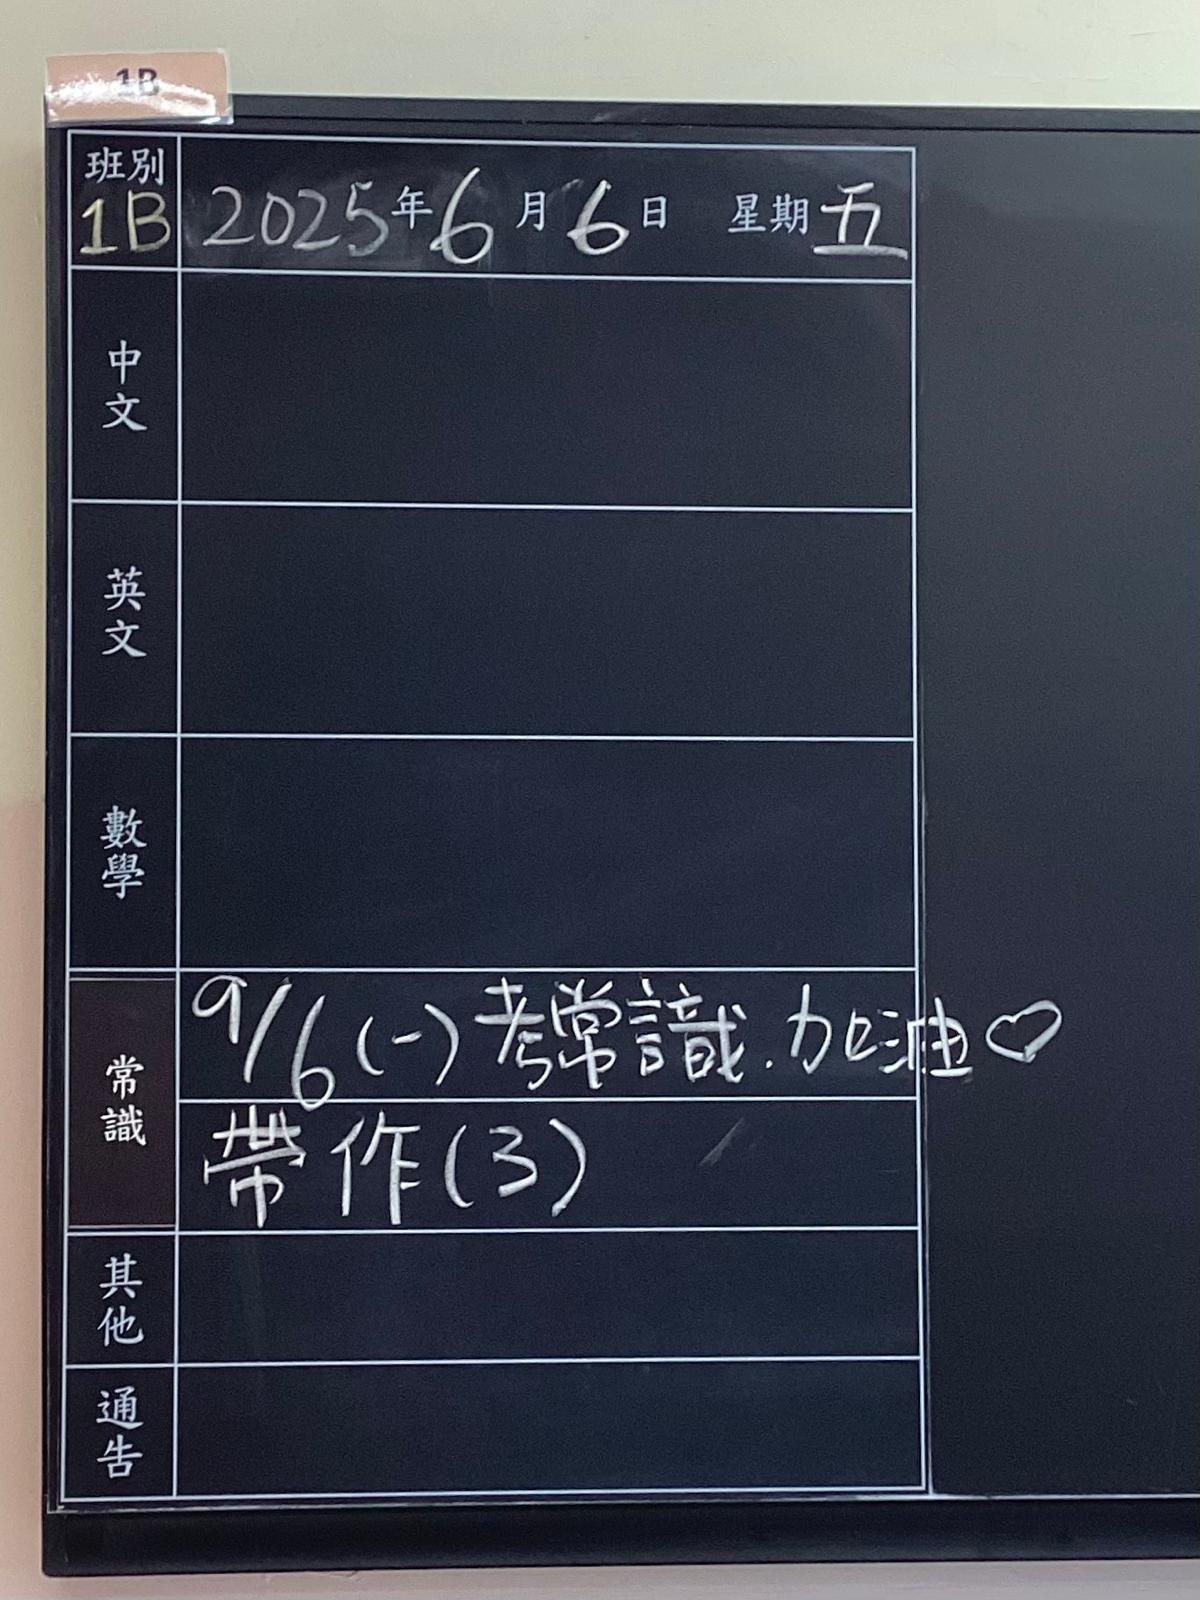 1B
班別
1B
2025年6月6日 星期五
中文
英文
數學
常識
9/6(一)考常識.加油♡
帶作(3)
其他
通告